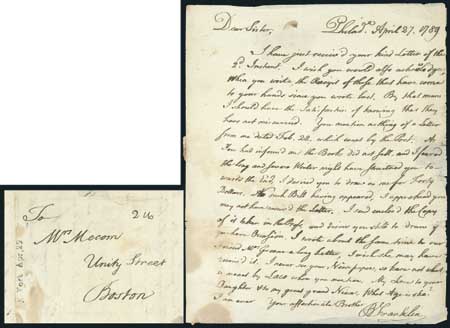 Dear Sister, Philad.ᵃ April 27. 1789
I have just receiv'd your kind Letter of the
2.ᵈ Instant. I wish you would also acknowledge,
when you write the Receipt of those that have come
to your hands since you wrote last. By that means
I should have the Satisfaction of knowing that they
have not miscarried. You mention nothing of a Letter
from me dated Feb. 22, which went by the Post. As
you had inform'd me the Books did not sell, and I feared
the long and severe Winter might have straitned you
wards the End, I desired you to draw on me for Forty
Dollars. No such Bill having appeared, I apprehend you
may not have received the Letter. I send enclos'd the Copy
of it taken in the Press, and desire you still to draw if
you have Occasion. I wrote about the same time to our
Friend Mrs Greene a long Letter, I wish she may have
receiv'd it. I meet no
so have not what
is meant by
when you mention. My Love to your
Daughter & to my great grand Niece. What Age is she?
I am ever Your affectionate Brother
B Franklin
To 2 16
Mrs Mecom
Unity Street
Boston